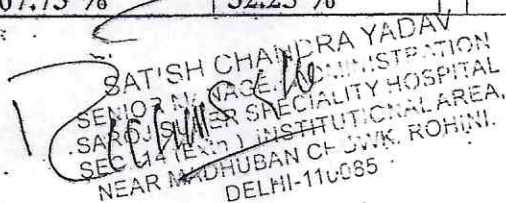 07.75 % 32.25 %
SATISH CHANDRA YADAV
SENIOR MANAGER ADMINISTRATION
SAROJ SUPER SPECIALITY HOSPITAL
SEC-14 (EXTN.) INSTITUTIONAL AREA,
NEAR MADHUBAN CHOWK, ROHINI.
DELHI-110085